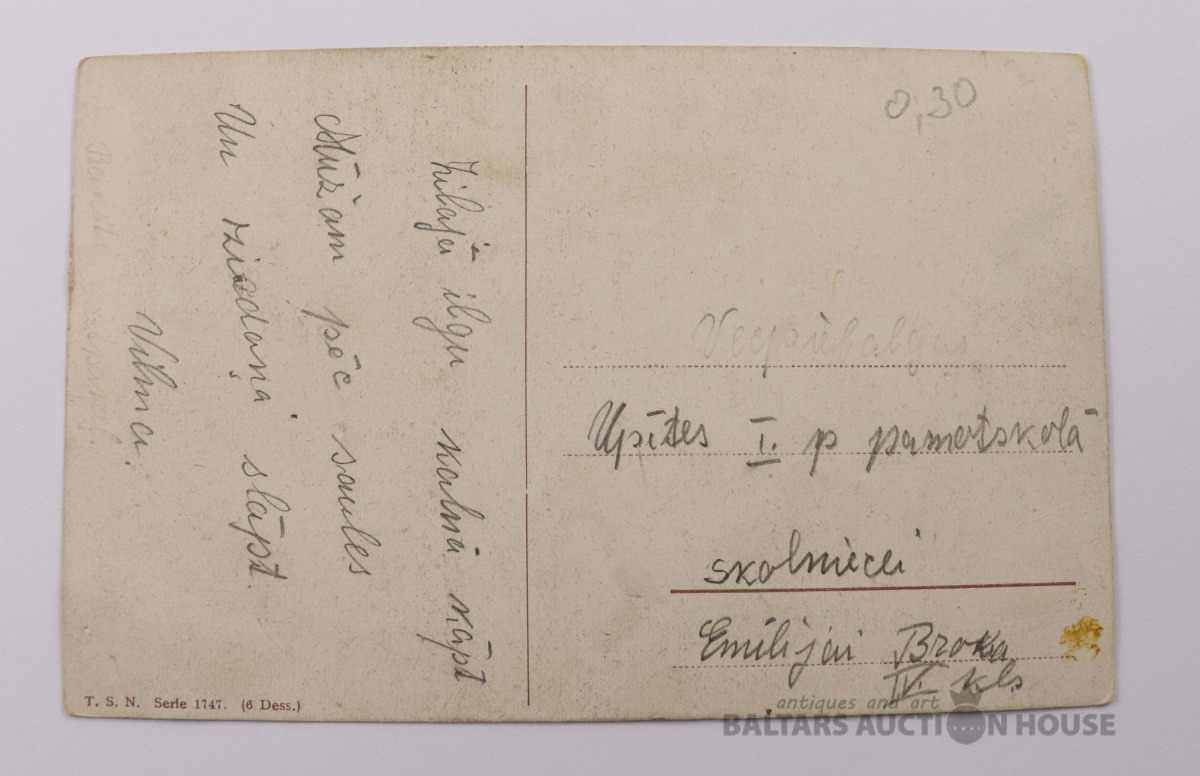 Zilajā ilgu kalnā kāpt
Mūžam pēc saules
Un dziedoņa slāpt.
Vilma.
0,30
Vecpiebalgas
Upītes I. p pamatskolā
skolniecei
Emilijai Broka
IV. kls
T. S. N. Serie 1747. (6 Dess.)
antiques and art
BALTARS AUCTION HOUSE